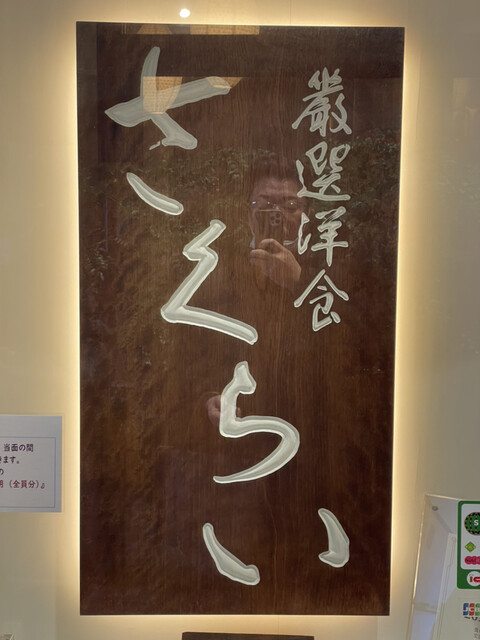 厳選洋食
さくらい
当面の間
ます。
の
(全員分)』
S
JCB